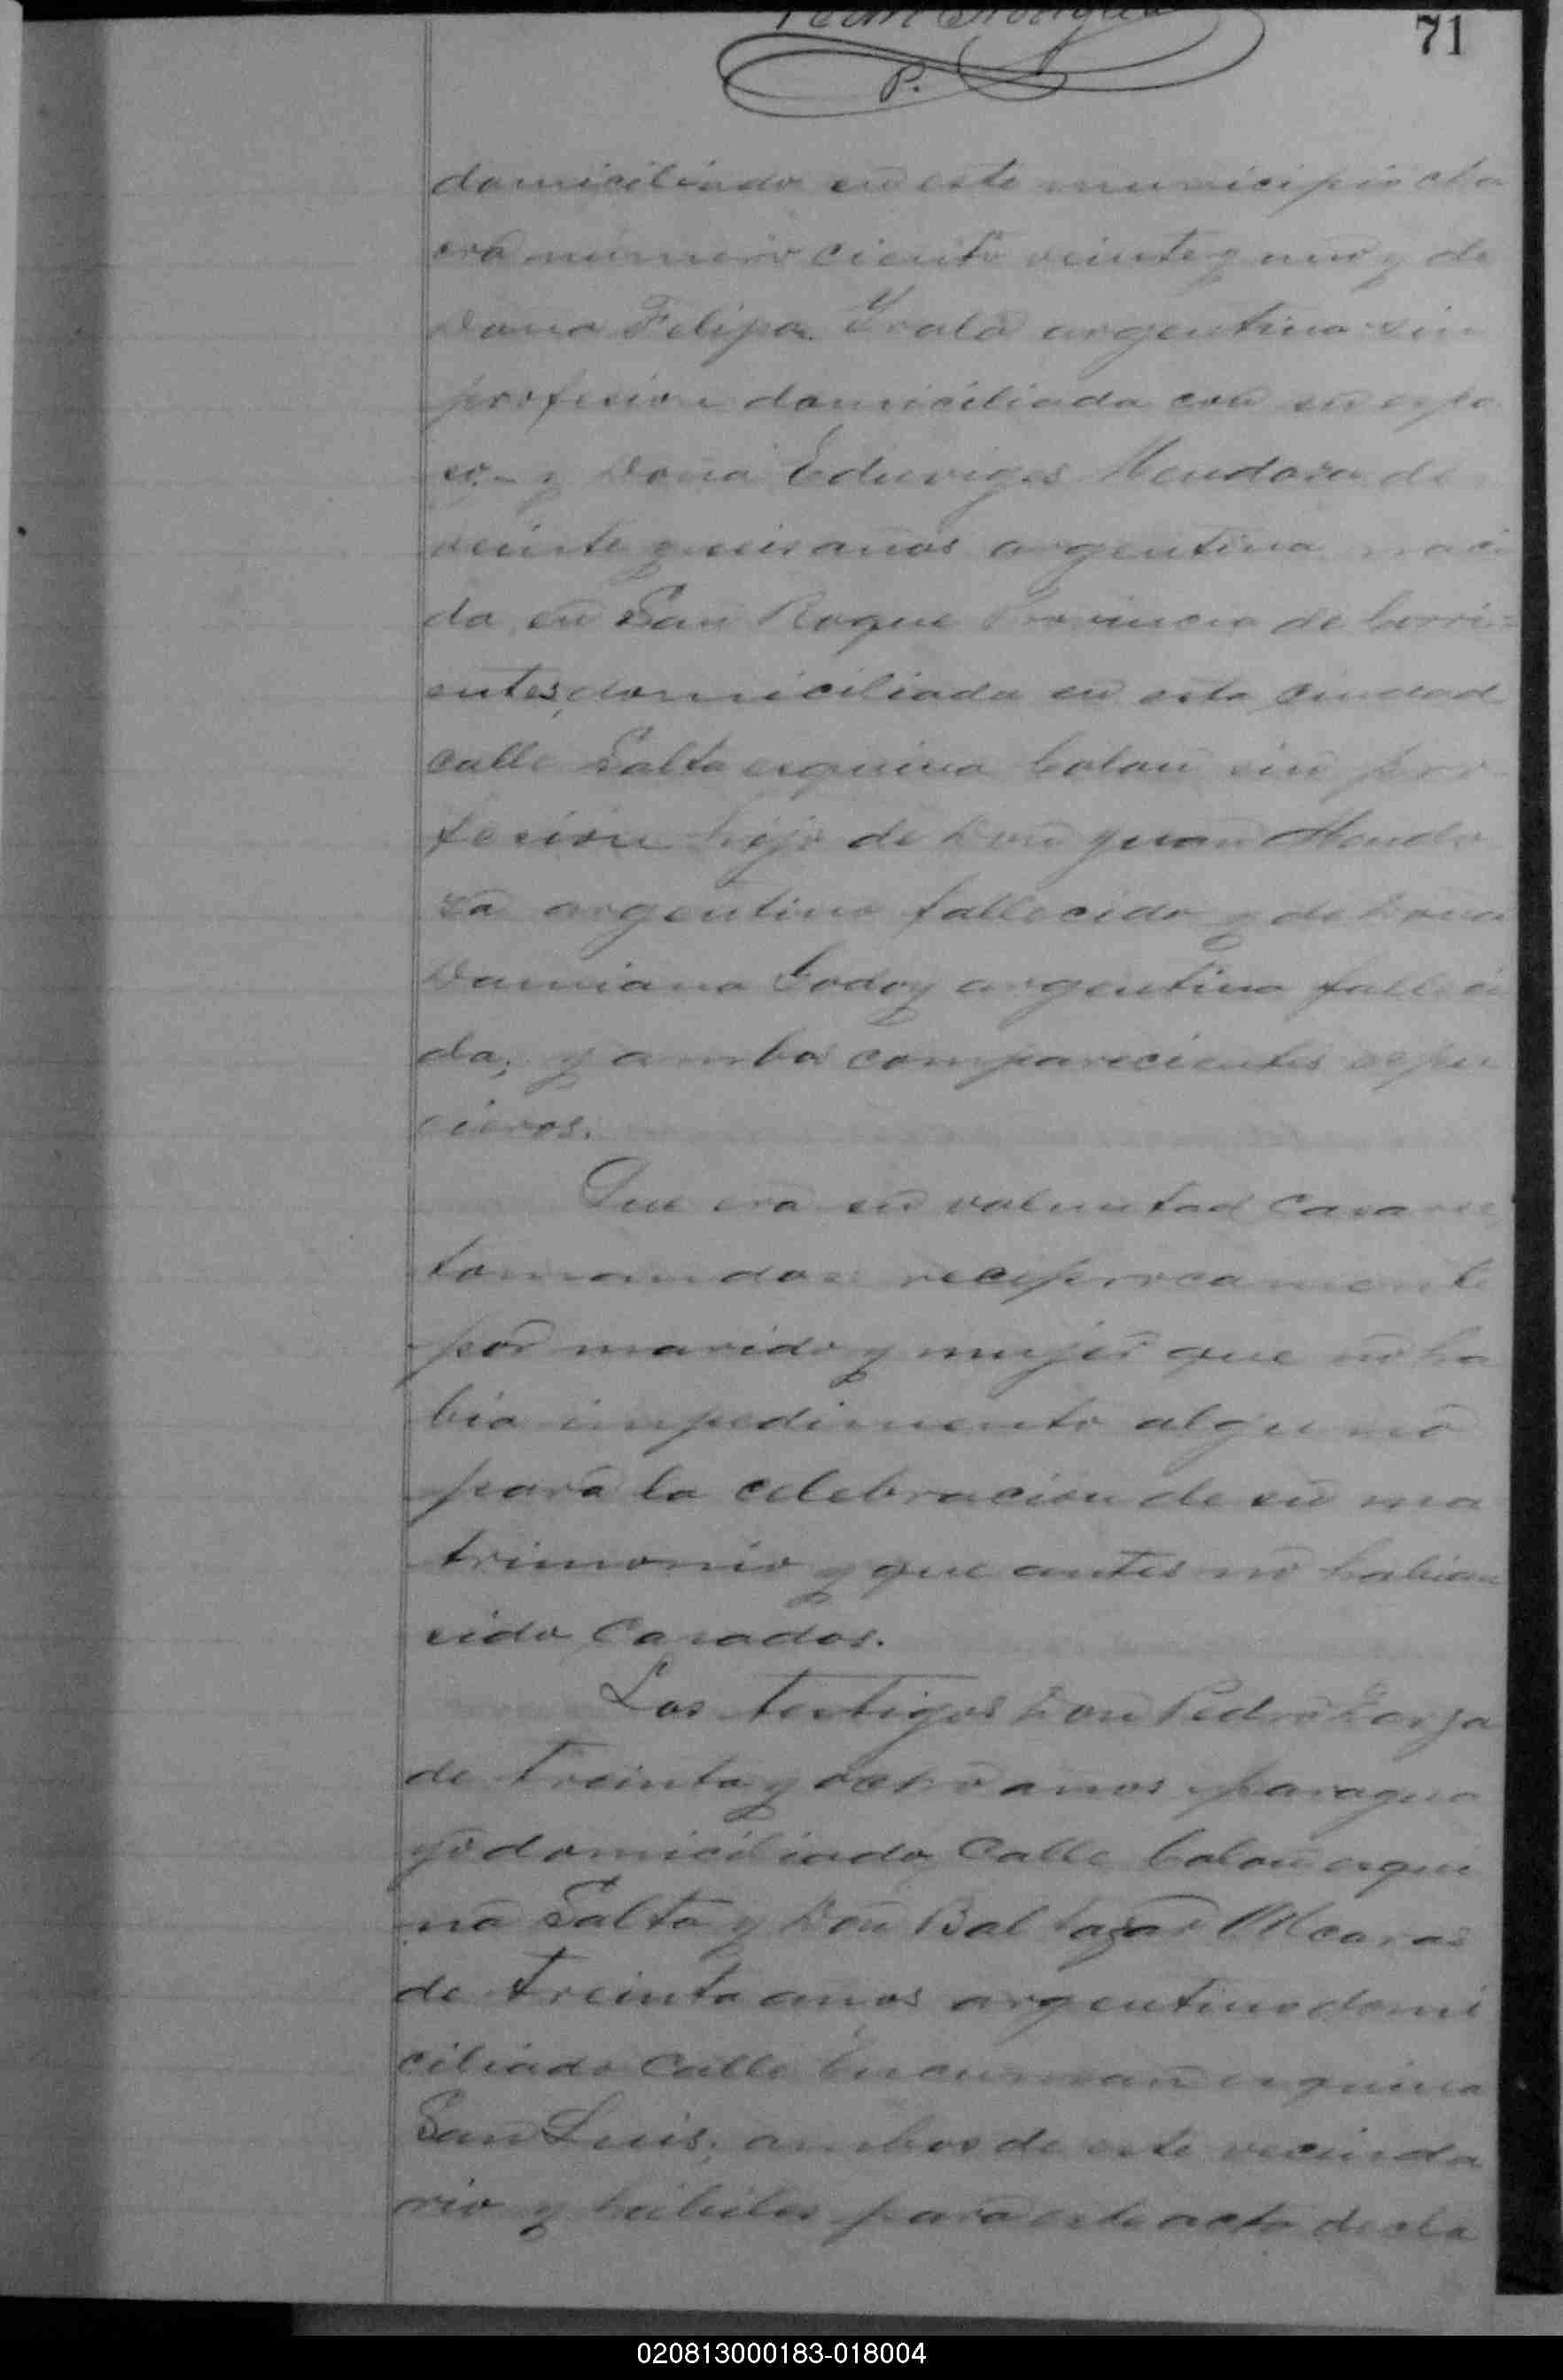 71
P.
domiciliado en este municipio cha
cra número ciento veinte y uno y de
Doña Felipa Yrala argentina sin
profesion domiciliada con su espo
so,- y Doña Eduviges Mendoza de
veinte y seis años argentina naci
da en San Roque Provincia de Corri=
entes, domiciliada en esta ciudad
calle Salta esquina Colon sin pro
fesión hija de Don Juan Mendo
za argentino fallecido y de Doña
Damiana Godoy argentina falleci
da; y ambos comparecientes espu
cieros.
Que era su voluntad casarse
tomandose reciprocamente
por marido y mujer que no ha
bia impedimento alguno
para la celebracion de su ma
trimonio y que antes no habian
sido Casados.
Los testigos Don Pedro
de treinta y ocho años paragua
yo domiciliado Calle Colon esqui
na Salta y Don Baltazar Alcaras
de treinta años argentino domi
ciliado Calle Tucuman esquina
San Luis; ambos de este vecinda
rio y habiles para este acto decla
020813000183-018004